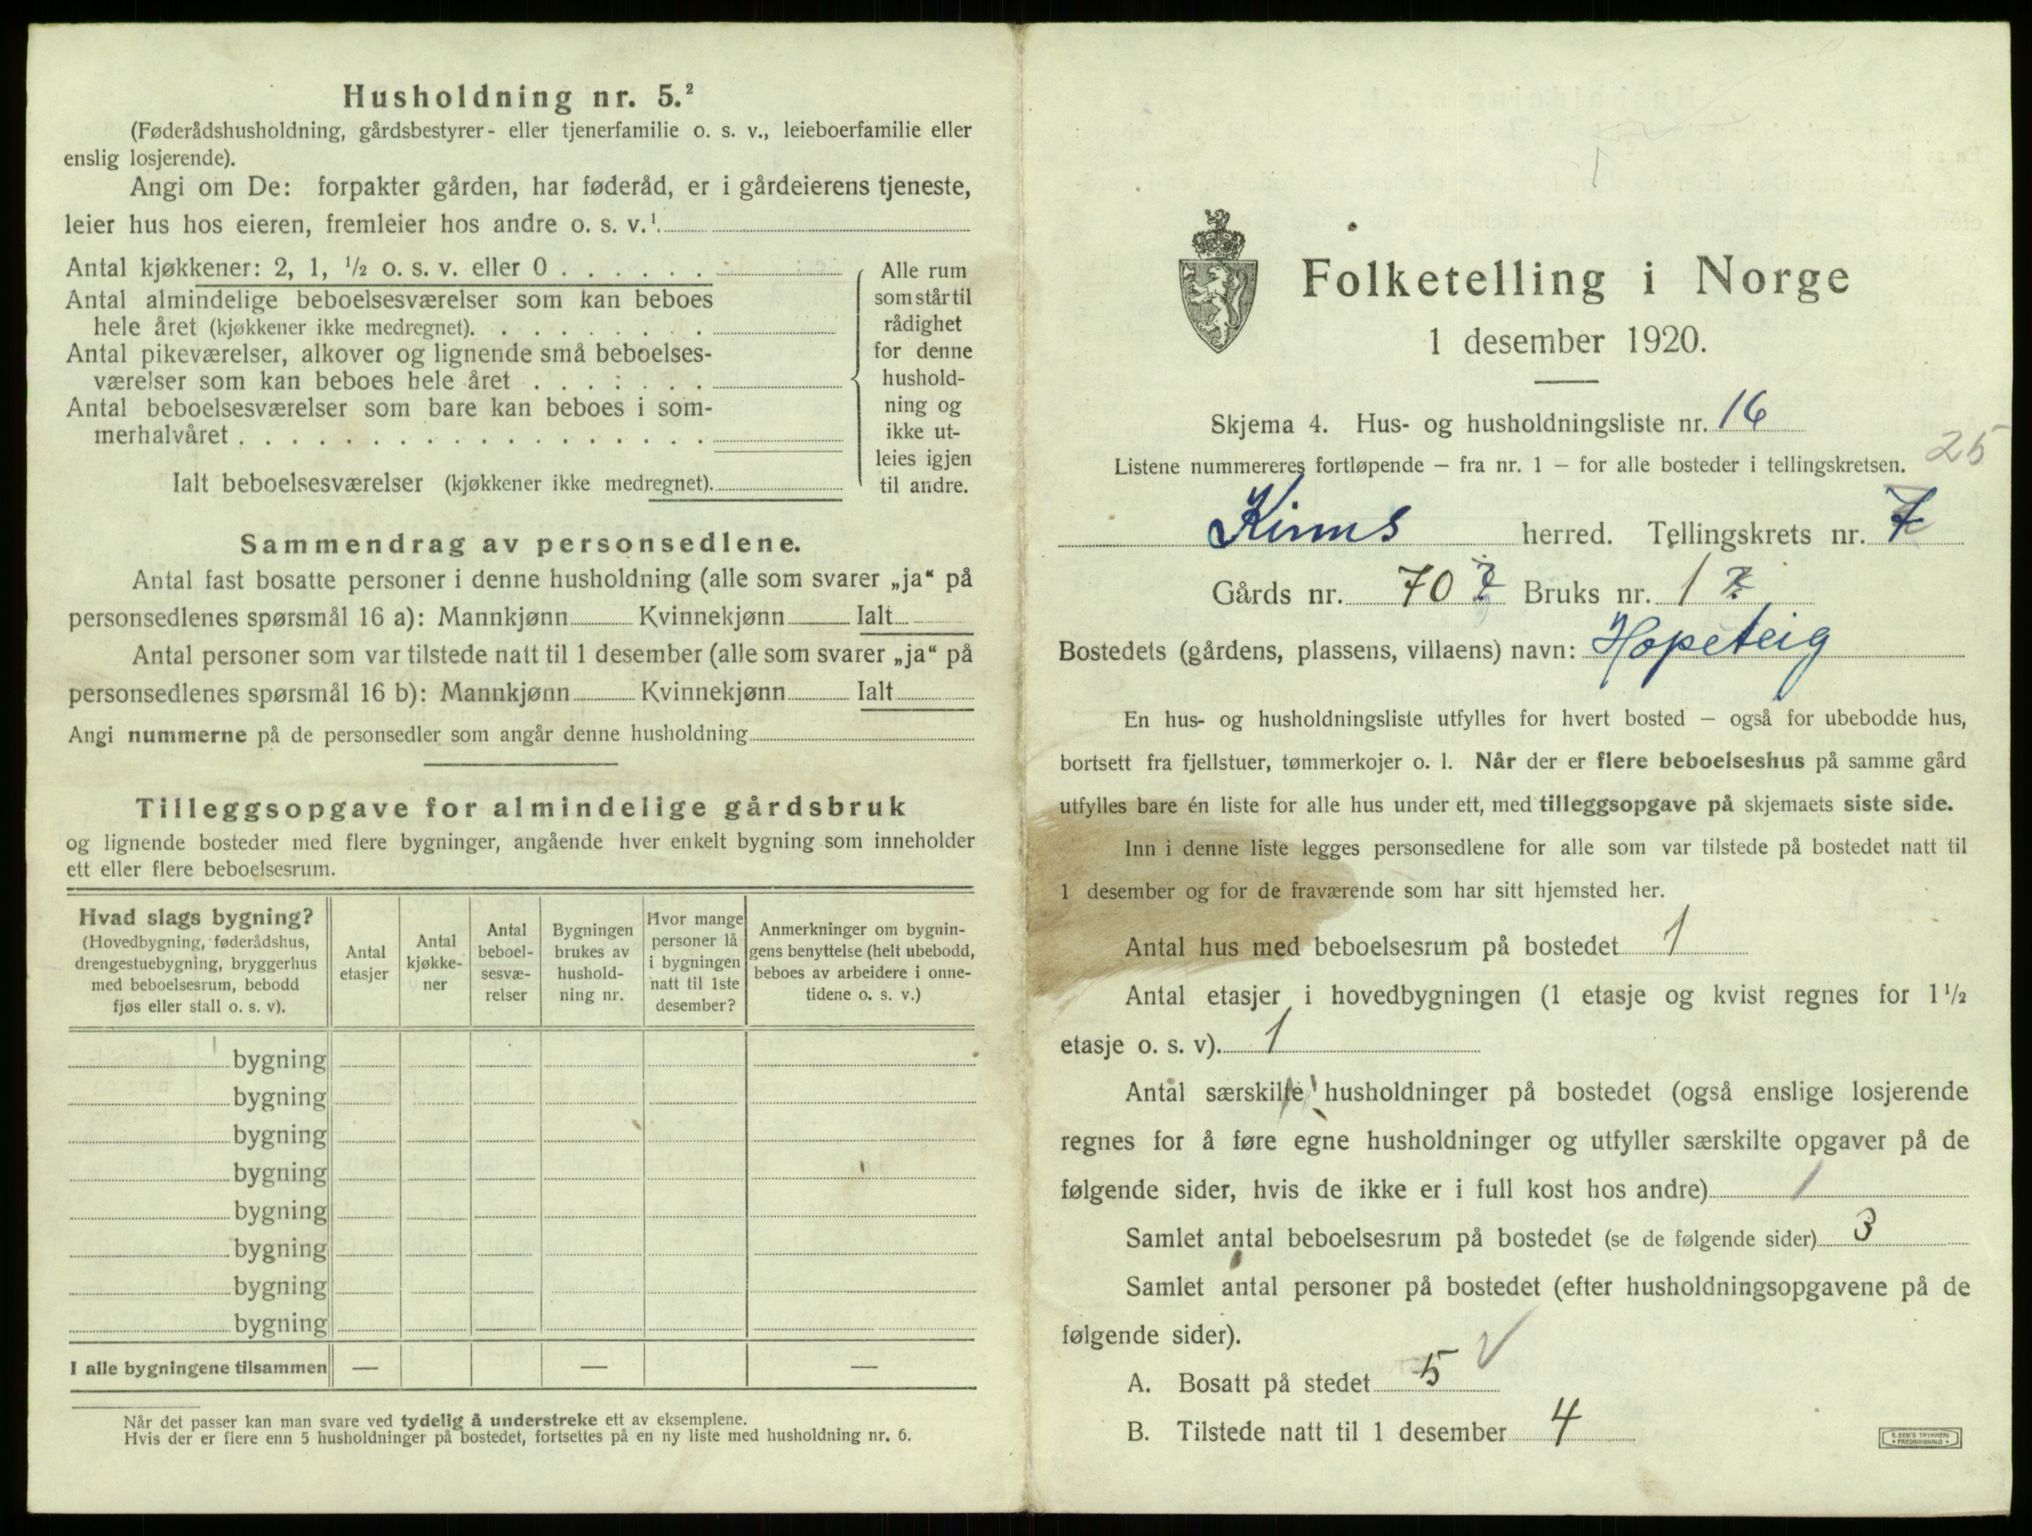 Husholdning nr. 5.²
(Føderådshusholdning, gårdsbestyrer- eller tjenerfamilie o. s. v., leieboerfamilie eller
enslig losjerende).
Angi om De: forpakter gården, har føderåd, er i gårdeierens tjeneste,
leier hus hos eieren, fremleier hos andre o. s. v.¹
Antal kjøkkener: 2, 1, ½ o. s. v. eller 0 . . . . . .
Antal almindelige beboelsesværelser som kan beboes
hele året (kjøkkener ikke medregnet). . . . . . . . .
Antal pikeværelser, alkover og lignende små beboelses-
værelser som kan beboes hele året . . . : . . .
Antal beboelsesværelser som bare kan beboes i som-
merhalvåret . . . . . . . . . . . . . . . . . .
Ialt beboelsesværelser (kjøkkener ikke medregnet).
Alle rum
som står til
rådighet
for denne
hushold-
ning og
ikke ut-
leies igjen
til andre.
Sammendrag av personsedlene.
Antal fast bosatte personer i denne husholdning (alle som svarer „ja“ på
personsedlenes spørsmål 16 a): Mannkjønn Kvinnekjønn Ialt
Antal personer som var tilstede natt til 1 desember (alle som svarer „ja“ på
personsedlenes spørsmål 16 b): Mannkjønn Kvinnekjønn Ialt
Angi nummerne på de personsedler som angår denne husholdning
Tilleggsopgave for almindelige gårdsbruk
og lignende bosteder med flere bygninger, angående hver enkelt bygning som inneholder
ett eller flere beboelsesrum.
Hvad slags bygning?
(Hovedbygning, føderådshus,
drengestuebygning, bryggerhus
med beboelsesrum, bebodd
fjøs eller stall o. s. v).
Antal
etasjer
Antal
kjøkke-
ner
Antal
beboel-
sesvæ-
relser
Bygningen
brukes av
hushold-
ning nr.
Hvor mange
personer lå
i bygningen
natt til 1ste
desember?
Anmerkninger om bygnin-
gens benyttelse (helt ubebodd,
beboes av arbeidere i onne-
tidene o. s. v.)
bygning
bygning
bygning
bygning
bygning
bygning
bygning
bygning
I alle bygningene tilsammen — — —
Når det passer kan man svare ved tydelig å understreke ett av eksemplene.
Hvis der er flere enn 5 husholdninger på bostedet, fortsettes på en ny liste med husholdning nr. 6.
Folketelling i Norge
1 desember 1920.
Skjema 4. Hus- og husholdningsliste nr. 16
25
Listene nummereres fortløpende — fra nr. 1 — for alle bosteder i tellingskretsen.
Kinns herred. Tellingskrets nr. 7
Gårds nr. 70 ? Bruks nr. 1 ?
Bostedets (gårdens, plassens, villaens) navn: Hopeteig
En hus- og husholdningsliste utfylles for hvert bosted — også for ubebodde hus,
bortsett fra fjellstuer, tømmerkojer o. l. Når der er flere beboelseshus på samme gård
utfylles bare én liste for alle hus under ett, med tilleggsopgave på skjemaets siste side.
Inn i denne liste legges personsedlene for alle som var tilstede på bostedet natt til
1 desember og for de fraværende som har sitt hjemsted her.
Antal hus med beboelsesrum på bostedet 1
Antal etasjer i hovedbygningen (1 etasje og kvist regnes for 1 ½
etasje o. s. v). 1
Antal særskilte husholdninger på bostedet (også enslige losjerende
regnes for å føre egne husholdninger og utfyller særskilte opgaver på de
følgende sider, hvis de ikke er i full kost hos andre) 1
Samlet antal beboelsesrum på bostedet (se de følgende sider) 3
Samlet antal personer på bostedet (efter husholdningsopgavene på de
følgende sider).
A. Bosatt på stedet 5
B. Tilstede natt til 1 desember 4